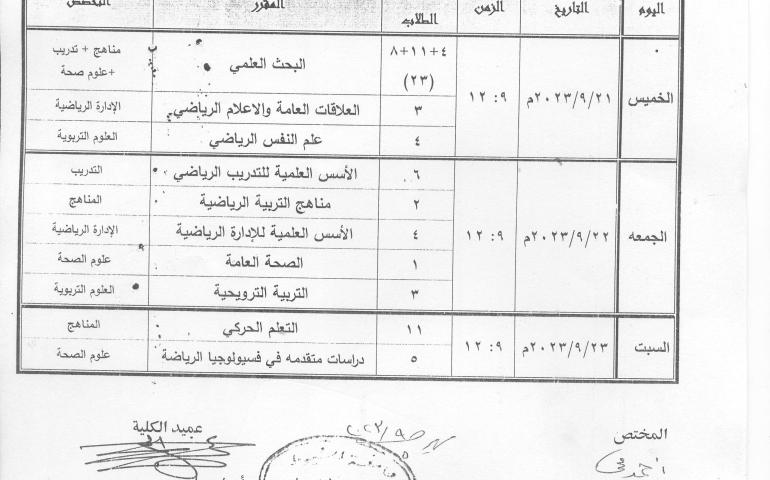 اليوم التاريخ الزمن الطلاب المقرر التخصص
الخميس ٢٠٢٣/٩/٢١م ٩: ١٢ ٤+١١+٨ (٢٣) البحث العلمي مناهج + تدريب +علوم صحة
٣ العلاقات العامة والاعلام الرياضي الإدارة الرياضية
٤ علم النفس الرياضي العلوم التربوية
الجمعه ٢٠٢٣/٩/٢٢م ٩: ١٢ ٦ الأسس العلمية للتدريب الرياضي التدريب
٢ مناهج التربية الرياضية المناهج
٤ الأسس العلمية للإدارة الرياضية الإدارة الرياضية
١ الصحة العامة علوم الصحة
٣ التربية الترويحية العلوم التربوية
السبت ٢٠٢٣/٩/٢٣م ٩: ١٢ ١١ التعلم الحركي المناهج
٥ دراسات متقدمه في فسيولوجيا الرياضة علوم الصحة
المختص عميد الكلية